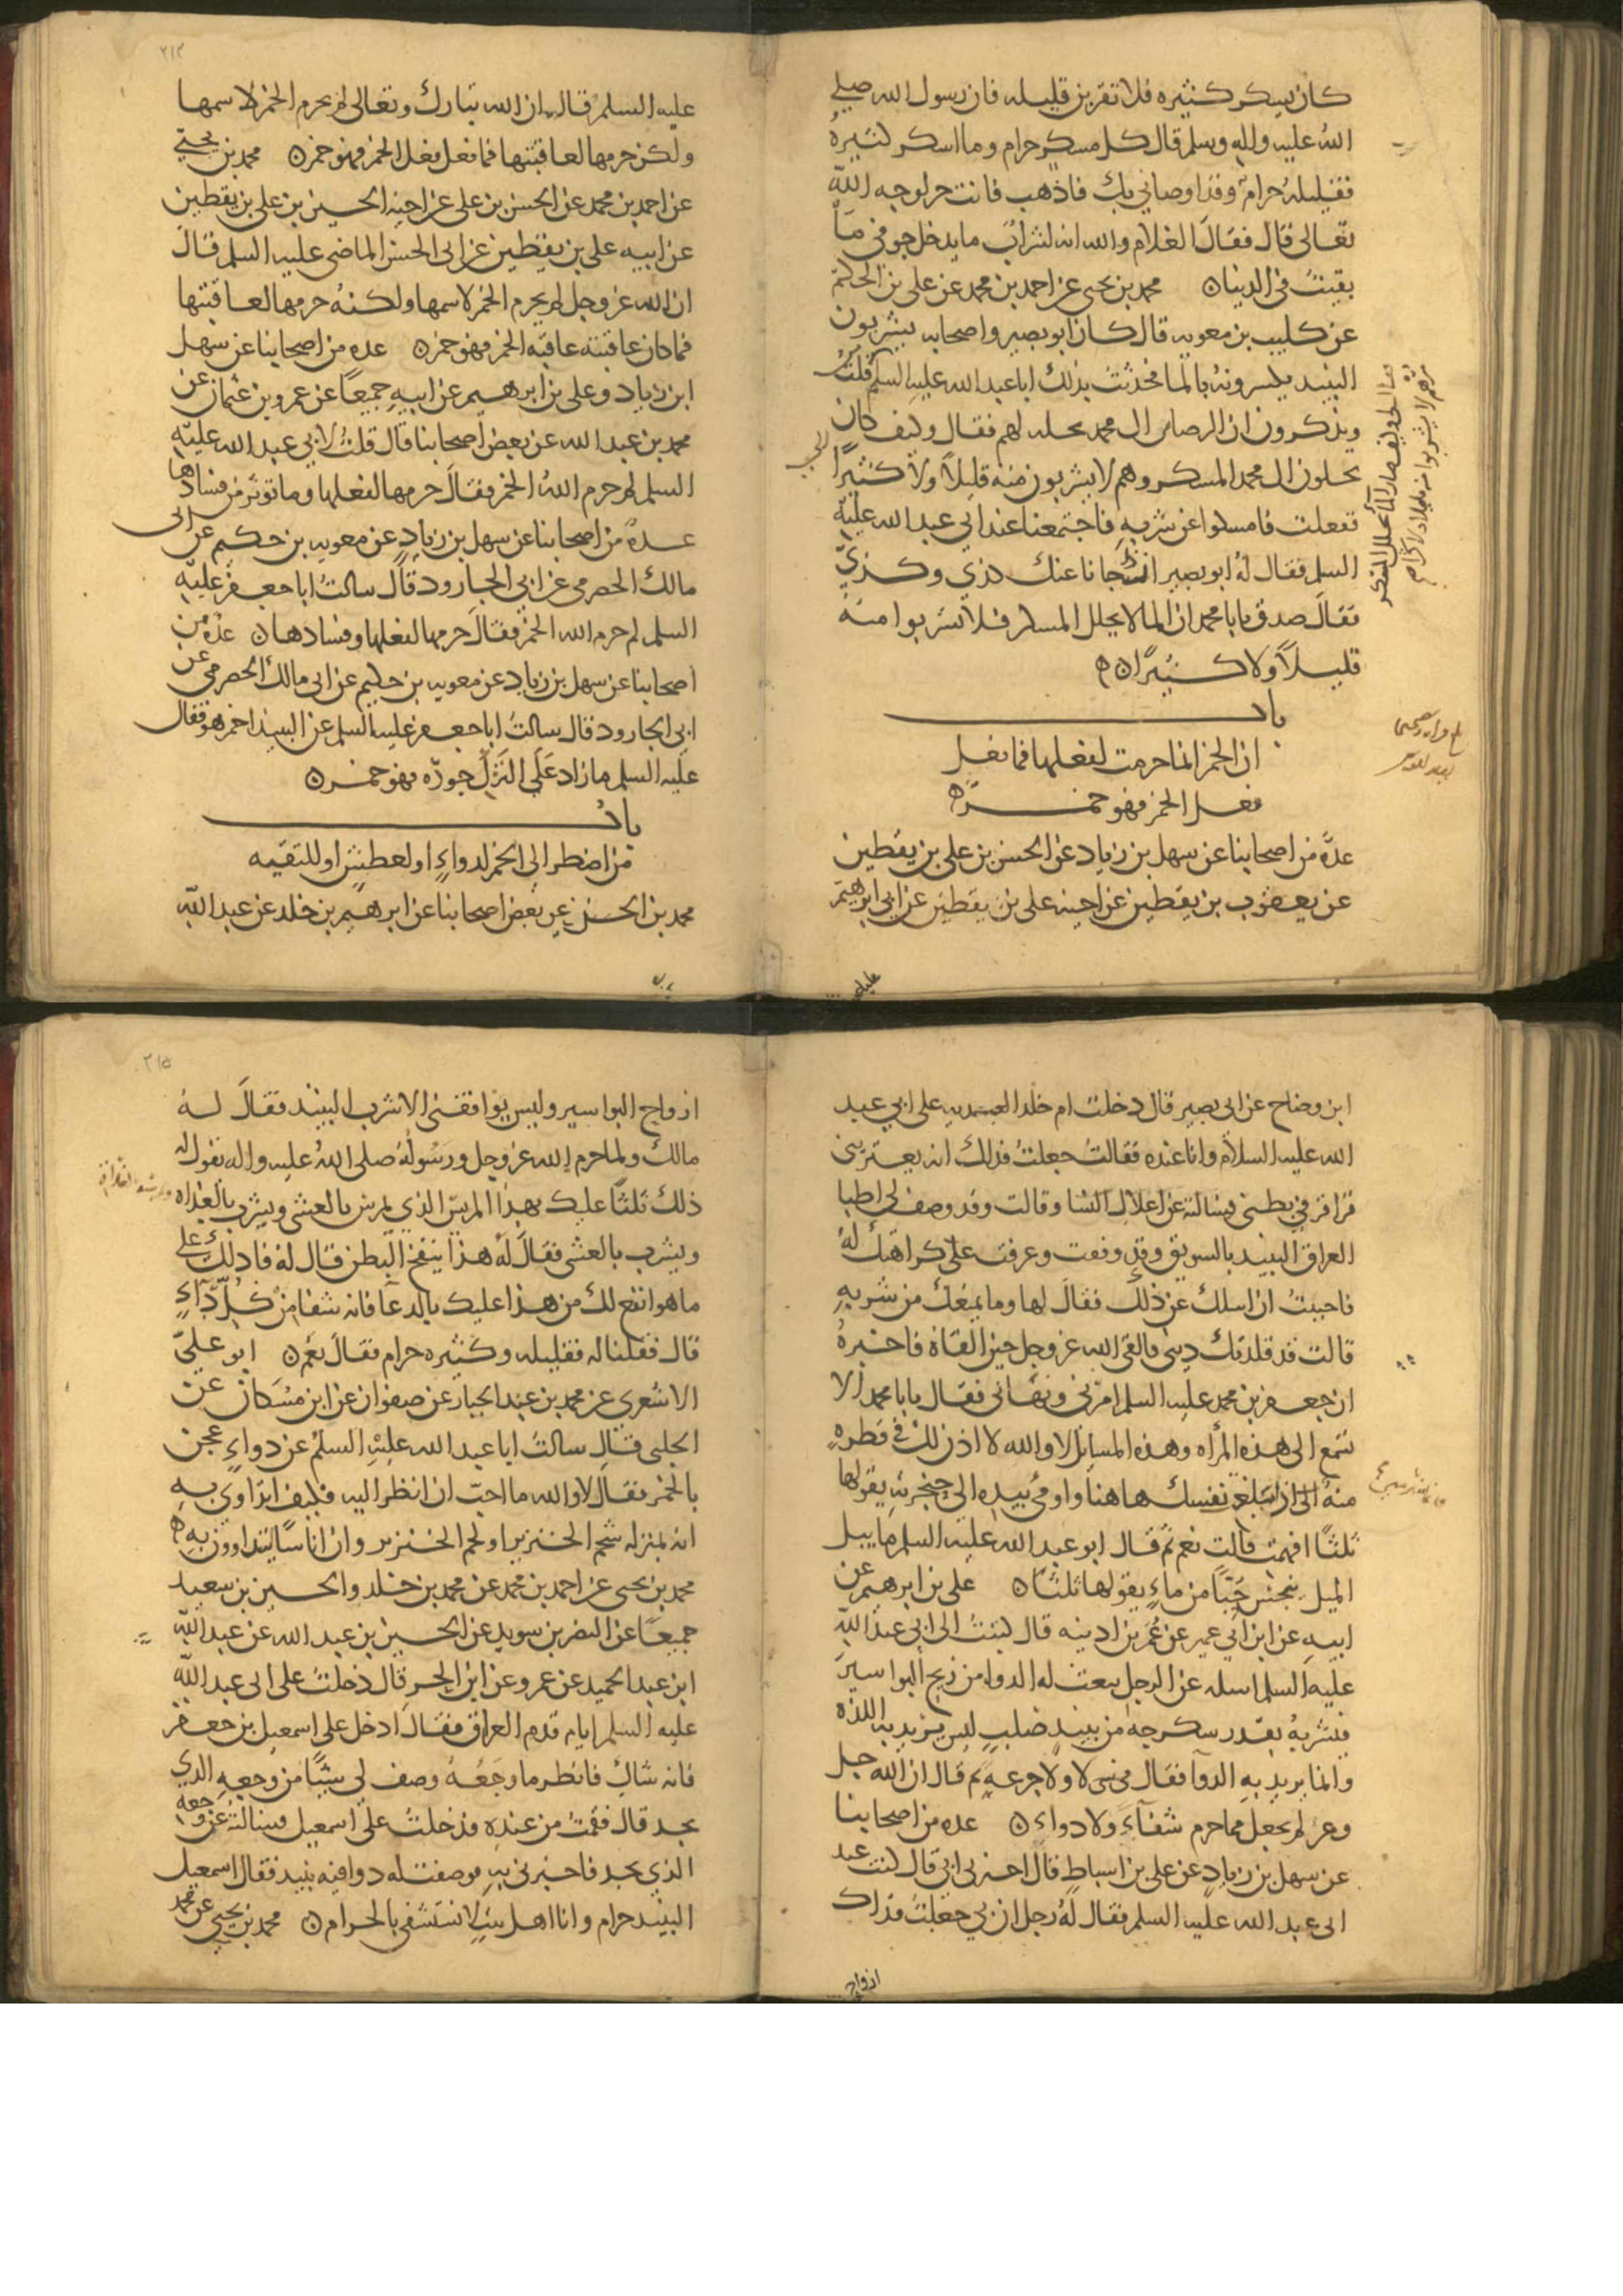 كان يسكر كثيره فلا تقربن قليله فان رسول الله صلى
الله عليه واله وسلم قال كل مسكر حرام وما اسكر كثيره
فقليله حرام وقد اوصاني بك فاذهب فانت حر لوجه الله
تعالى قال فقال الغلام والله انه لشراب ما يدخل جوفي ما
بقيت في الدنيا ن محمد بن يحيى عن احمد بن محمد عن علي بن الحكم
عن كليب بن معويه قال كان ابو بصير واصحابه يشربون
النبيذ يكسرونه بالما فحدثت بذلك ابا عبد الله عليه السلم
ويذكرون ان الرضا من ال محمد يحله لهم فقال وكيف كان
يحلون ال محمد المسكر وهم لا يشربون منه قليلا ولا كثيرا
ففعلت فامسكوا عن شربه فاجتمعنا عند ابي عبد الله عليه
السلم فقال له ابو بصير ان ذا جانا عنك بذي وكذي
فقال صدق يابا محمد ان الما لا يحلل المسكر فلا تشربوا منه
قليلا ولا كثيرا ن ه
باب
ان الخمر انما حرمت لفعلها فما فعل
فعل الخمر فهو خمر ه
عدة من اصحابنا عن سهل بن زياد عن الحسن بن علي بن يقطين
عن يعقوب بن يقطين عن اخيه علي بن يقطين عن ابي ابرهيم
عليه السلم قال ان الله تبارك وتعالى لم يحرم الخمر لاسمها
ولكن حرمها لعاقبتها فما فعل فعل الخمر فهو خمر ن محمد بن يحيى
عن احمد بن محمد عن الحسن بن علي عن اخيه الحسين بن علي بن يقطين
عن ابيه علي بن يقطين عن ابي الحسن الماضي عليه السلم قال
ان الله عز وجل لم يحرم الخمر لاسمها ولكنه حرمها لعاقبتها
فما كان عاقبته عاقبة الخمر فهو خمر ن عده من اصحابنا عن سهل
ابن زياد وعلي بن ابرهيم عن ابيه جميعا عن عمرو بن عثمان عن
محمد بن عبد الله عن بعض اصحابنا قال قلت لابي عبد الله عليه
السلم لم حرم الله الخمر فقال حرمها لفعلها وما توثر من فسادها
عدة من اصحابنا عن سهل بن زياد عن معويه بن حكيم عن ابي
مالك الحضرمي عن ابي الجارود قال سالت ابا جعفر عليه
السلم لم حرم الله الخمر فقال حرمها لفعلها وفسادها ن عدة من
اصحابنا عن سهل بن زياد عن معويه بن حكيم عن ابي مالك الحضرمي عن
ابي الجارود قال سالت ابا جعفر عليه السلم عن النبيذ اخمر هو فقال
عليه السلم ما زاد على الترك جوده فهو خمر ن
باب
من اضطر الى الخمر لدواء او لعطش او للتقيه
محمد بن الحسن عن بعض اصحابنا عن ابرهيم بن خلد عن عبد الله
ابن وضاح عن ابي بصير قال دخلت ام خلد العبديه على ابي عبد
الله عليه السلام وانا عنده فقالت جعلت فداك انه يعتريني
قراقر في بطني فسالته عن اعلال النسا وقالت وقد وصف لي اطبا
العراق النبيذ بالسويق وقد وقفت وعرفت كراهتك له
فاحببت ان اسلك عن ذلك فقال لها وما يمنعك من شربه
قالت قد قلدتك ديني فالقى الله عز وجل حين القاه فاخبره
ان جعفر بن محمد عليه السلم امرني ونهاني فقال يابا محمد الا
تسمع الى هذه المرأه وهذه المسايل لا والله لا اذن لك في قطره
منه نفسك هاهنا واومى بيده الى حنجرته يقولها
ثلثا افهمت قالت نعم ثم قال ابو عبد الله عليه السلم ما يبل
الميل ينجس حبا من ماء يقولها ثلثا ن علي بن ابرهيم عن
ابيه عن ابن ابي عمير عن عمر بن اذينه قال كتبت الى ابي عبد الله
عليه السلم اسله عن الرجل يبعث له الدوا من ريح البواسير
فيشربه بقدر سكرجه من نبيذ صلب ليس يريد به اللذه
وانما يريد به الدوا فقال لا ولا جرعه ثم قال ان الله جل
وعز لم يجعل مما حرم شفاء ولا دواء ن عده من اصحابنا
عن سهل بن زياد عن علي بن اسباط قال اخبرني ابي قال كنت عند
ابي عبد الله عليه السلم فقال له رجل ان بي جعلت فداك
ازواج
ارواح البواسير وليس يوافقني الا شرب النبيذ فقال له
مالك ولما حرم الله عز وجل ورسوله صلى الله عليه واله يقول له
ذلك ثلثا عليك بهذا المريس الذي يمرس بالعشي ويشرب بالغداه
ويشرب بالعشي فقال له هذا ينفخ البطن قال له فادلك على
ما هو انفع لك من هذا عليك بالدعا فانه شفا من كل داء
قال فقلنا له فقليله وكثيره حرام فقال نعم ن ابو علي
الاشعري عن محمد بن عبد الجبار عن صفوان عن ابن مسكان عن
الحلبي قال سالت ابا عبد الله عليه السلم عن دواء عجن
بالخمر فقال لا والله ما احب ان انظر اليه فكيف اتداوى به
انه بمنزله شحم الخنزير او لحم الخنزير وان اناسا يتداوون به ه
محمد بن يحيى عن احمد بن محمد عن محمد بن خلد والحسين بن سعيد
جميعا عن النضر بن سويد عن الحسين بن عبد الله عن عبد الله
ابن عبد الحميد عن عمرو عن ابن الحر قال دخلت على ابي عبد الله
عليه السلم ايام قدم العراق فقال ادخل على اسمعيل بن جعفر
فانه شاك فانظر ما وجعه وصف لي شيئا من وجعه الذي
يجد قال فقمت من عنده فدخلت على اسمعيل فسالته عن وجعه
الذي يجد فاخبرني به فوصفت له دوا فيه نبيذ فقال اسمعيل
النبيذ حرام وانا اهل بيت لا نستشفي بالحرام ن محمد بن يحيى عن محمد